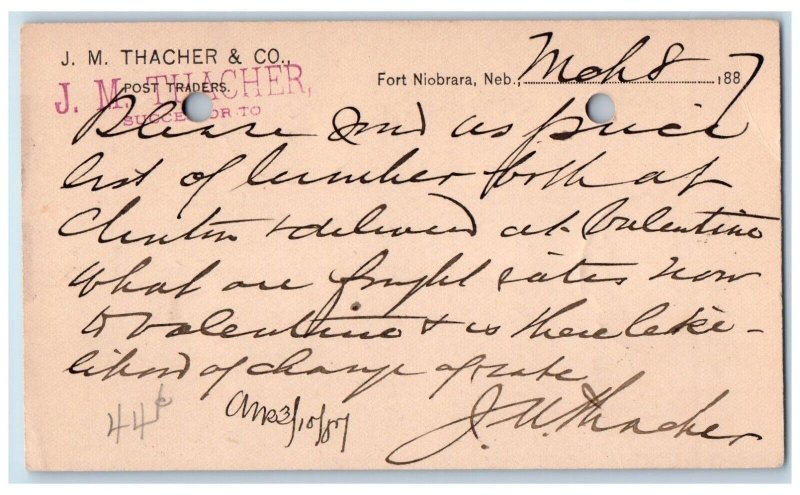 J. M. THACHER & CO.,
POST TRADERS.
J. M. THACHER,
SUCCESSOR TO
Fort Niobrara, Neb., Mch 8 1887
Please send us price
list of lumber both at
Clinton & delivered at Valentine
What are freight rates now
to Valentine & is there like-
lihood of change of rate
J. M. Thacher
Ans 3/10/87
44¢